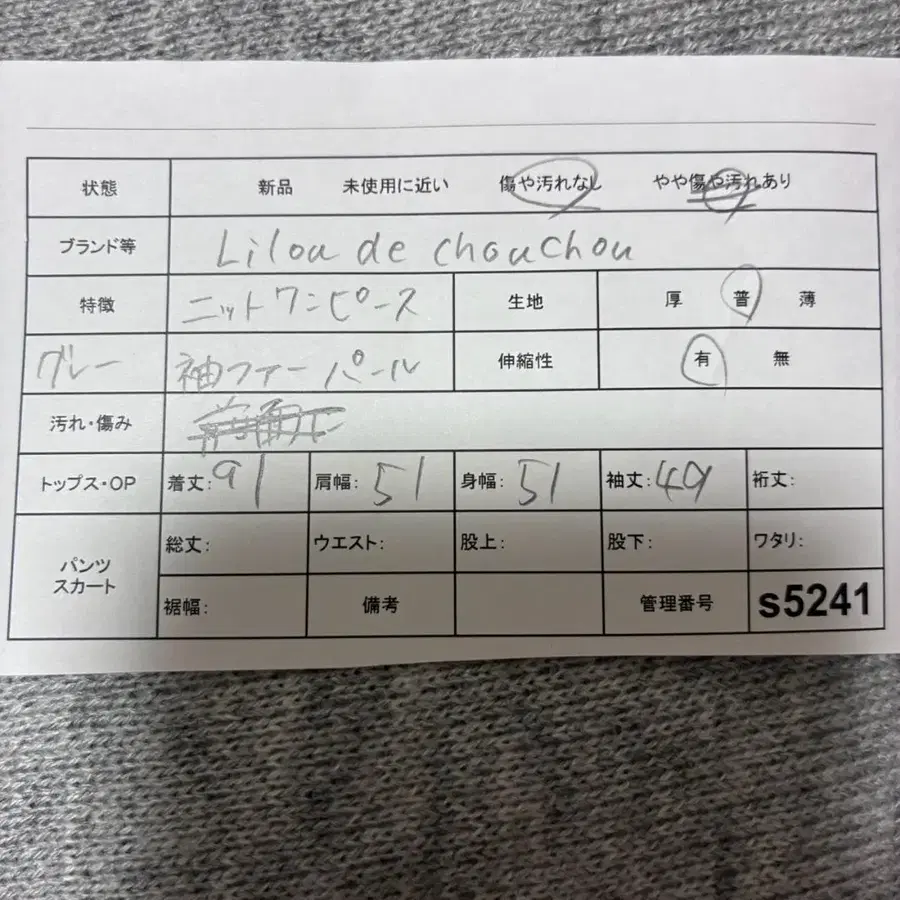 状態 新品 未使用に近い 傷や汚れなし やや傷や汚れあり
ブランド等 Lilou de chouchou
特徴 ニットワンピース 生地 厚 普 薄
グレー 袖ファーパール 伸縮性 有 無
汚れ・傷み
トップス・OP 着丈:91 肩幅:51 身幅:51 袖丈:49 裄丈:
パンツ スカート 総丈: ウエスト: 股上: 股下: ワタリ:
裾幅: 備考 管理番号 s5241